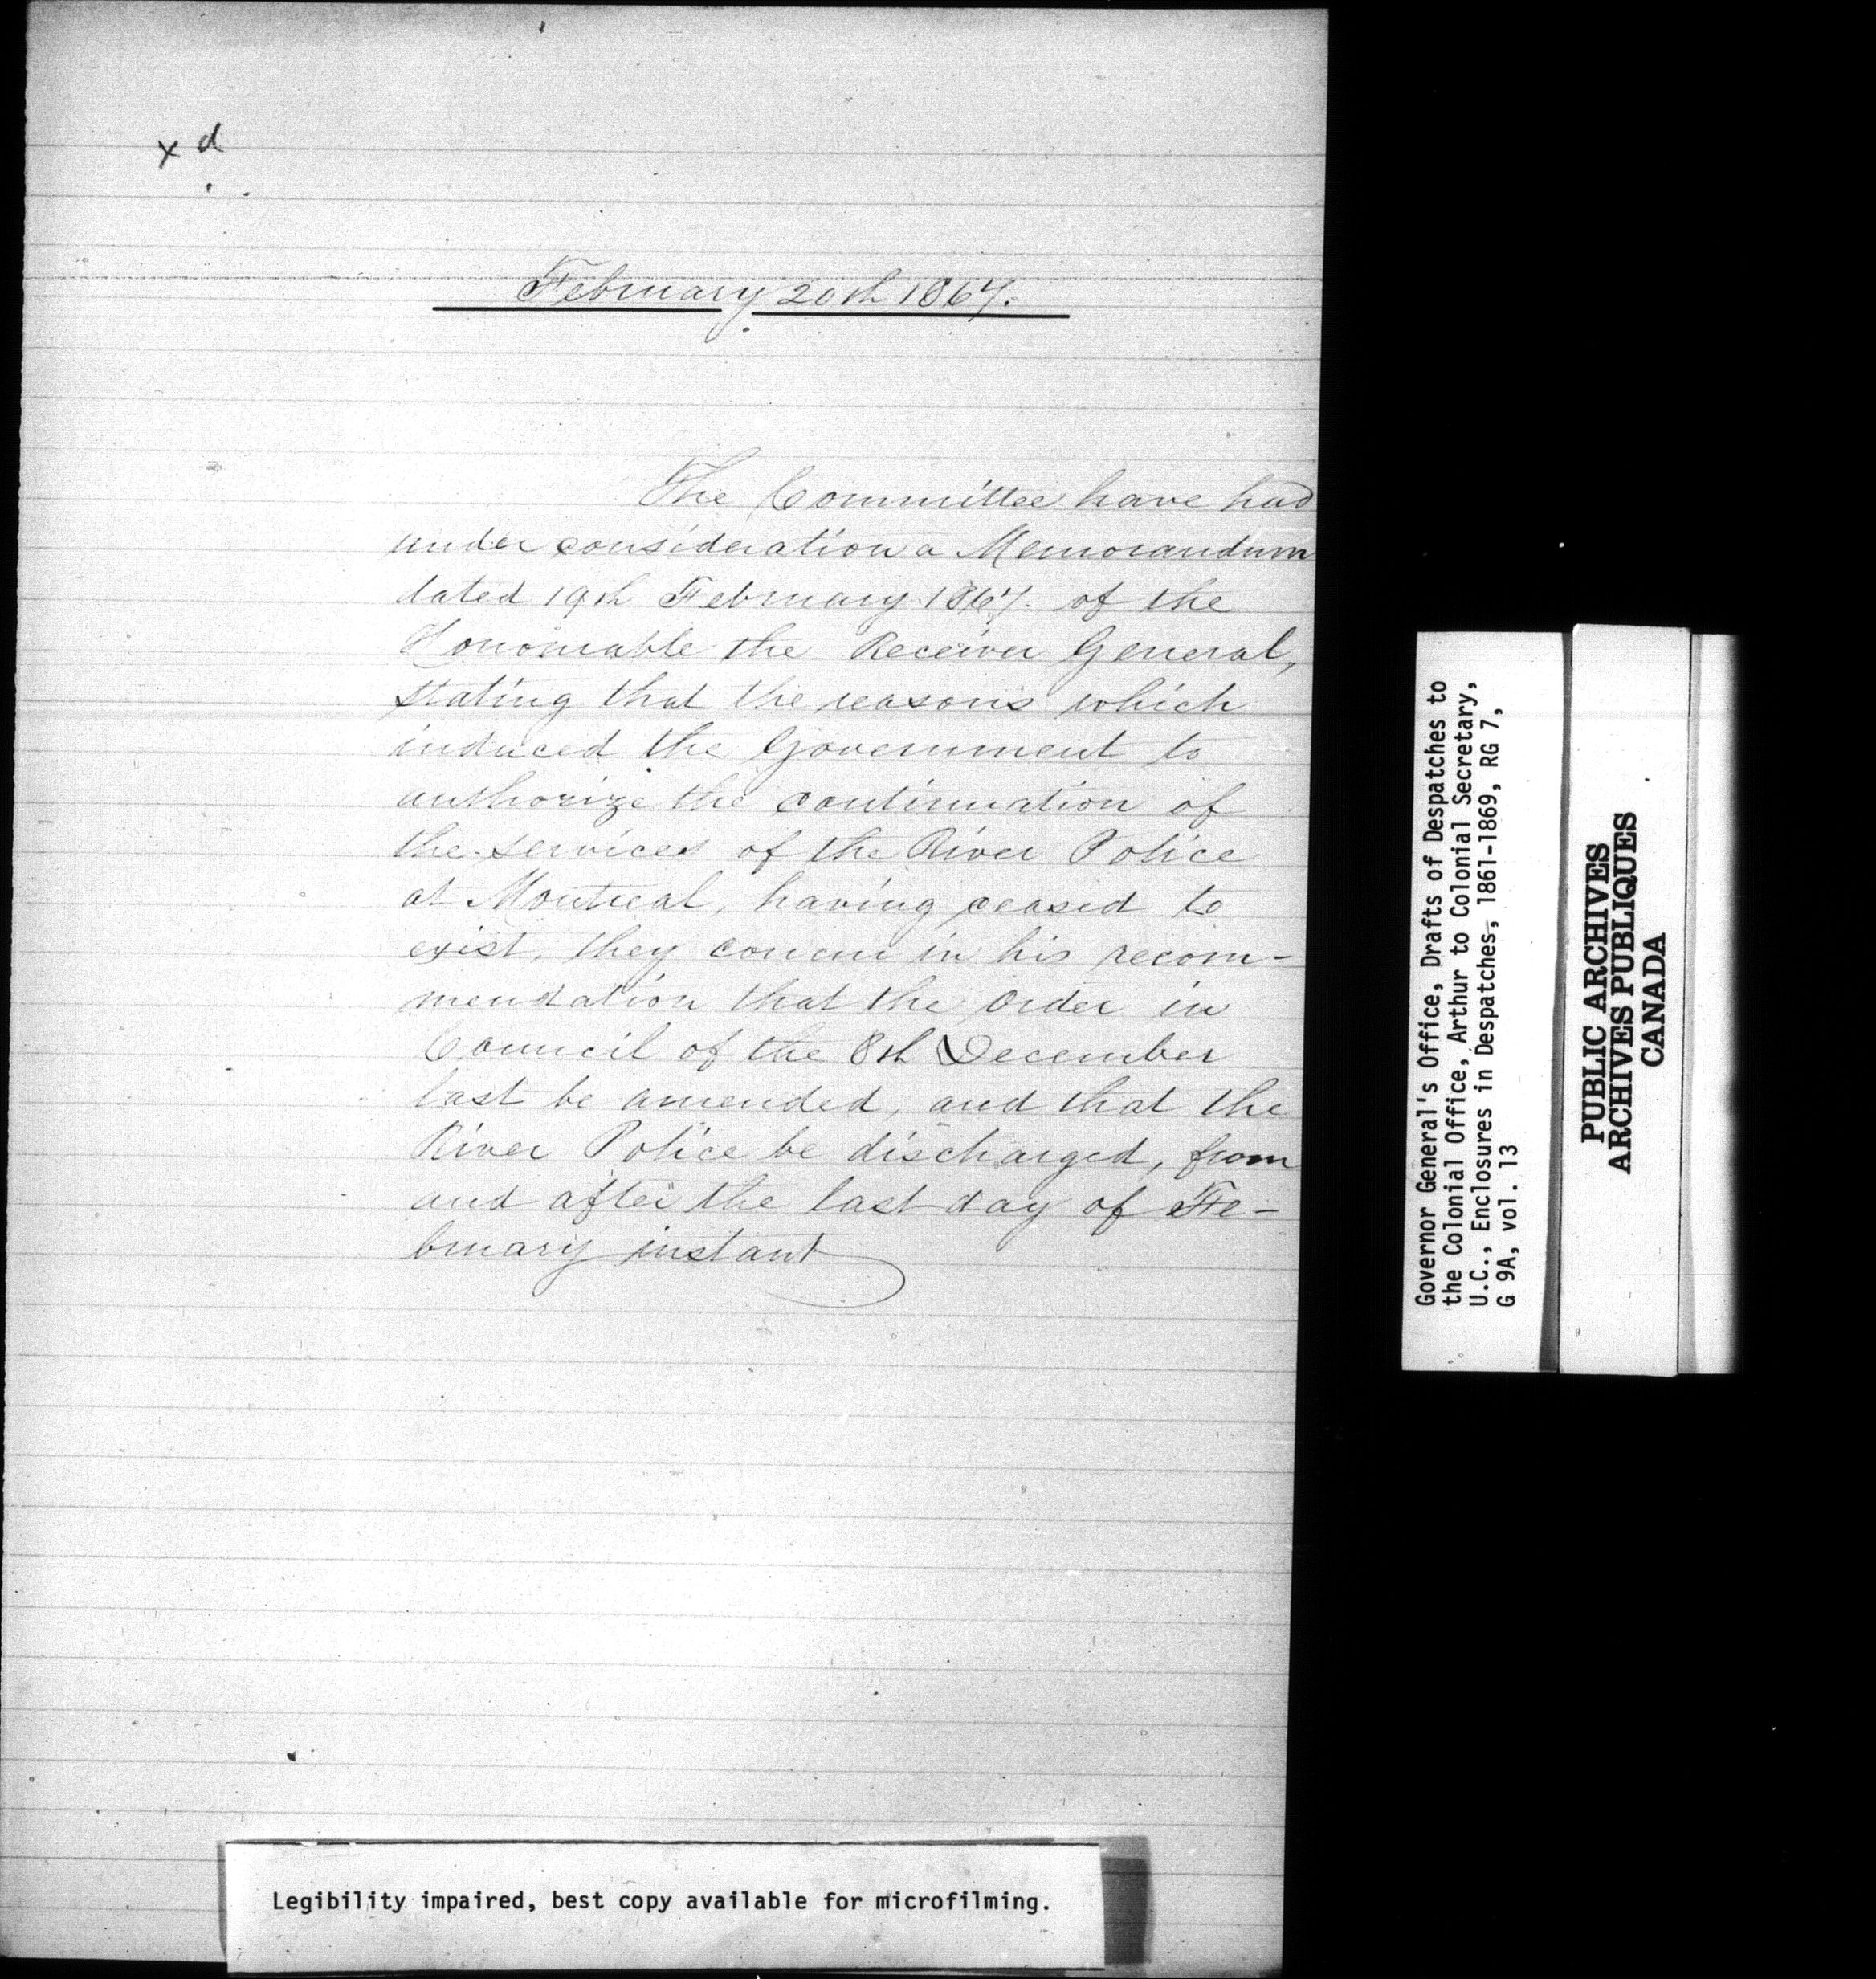 x d
February 20th 1867.
The Committee have had
under consideration a Memorandum
dated 19th February 1867. of the
Honorable the Receiver General,
stating that the reasons which
induced the Government to
authorize the continuation of
the services of the River Police
at Montreal, having ceased to
exist, they concur in his recom-
mendation that the Order in
Council of the 8th December
last be amended, and that the
River Police be discharged, from
and after the last day of Fe-
bruary instant
Legibility impaired, best copy available for microfilming.
Governor General's Office, Drafts of Despatches to
the Colonial Office, Arthur to Colonial Secretary,
U.C., Enclosures in Despatches, 1861-1869, RG 7,
G 9A, vol. 13
PUBLIC ARCHIVES
ARCHIVES PUBLIQUES
CANADA